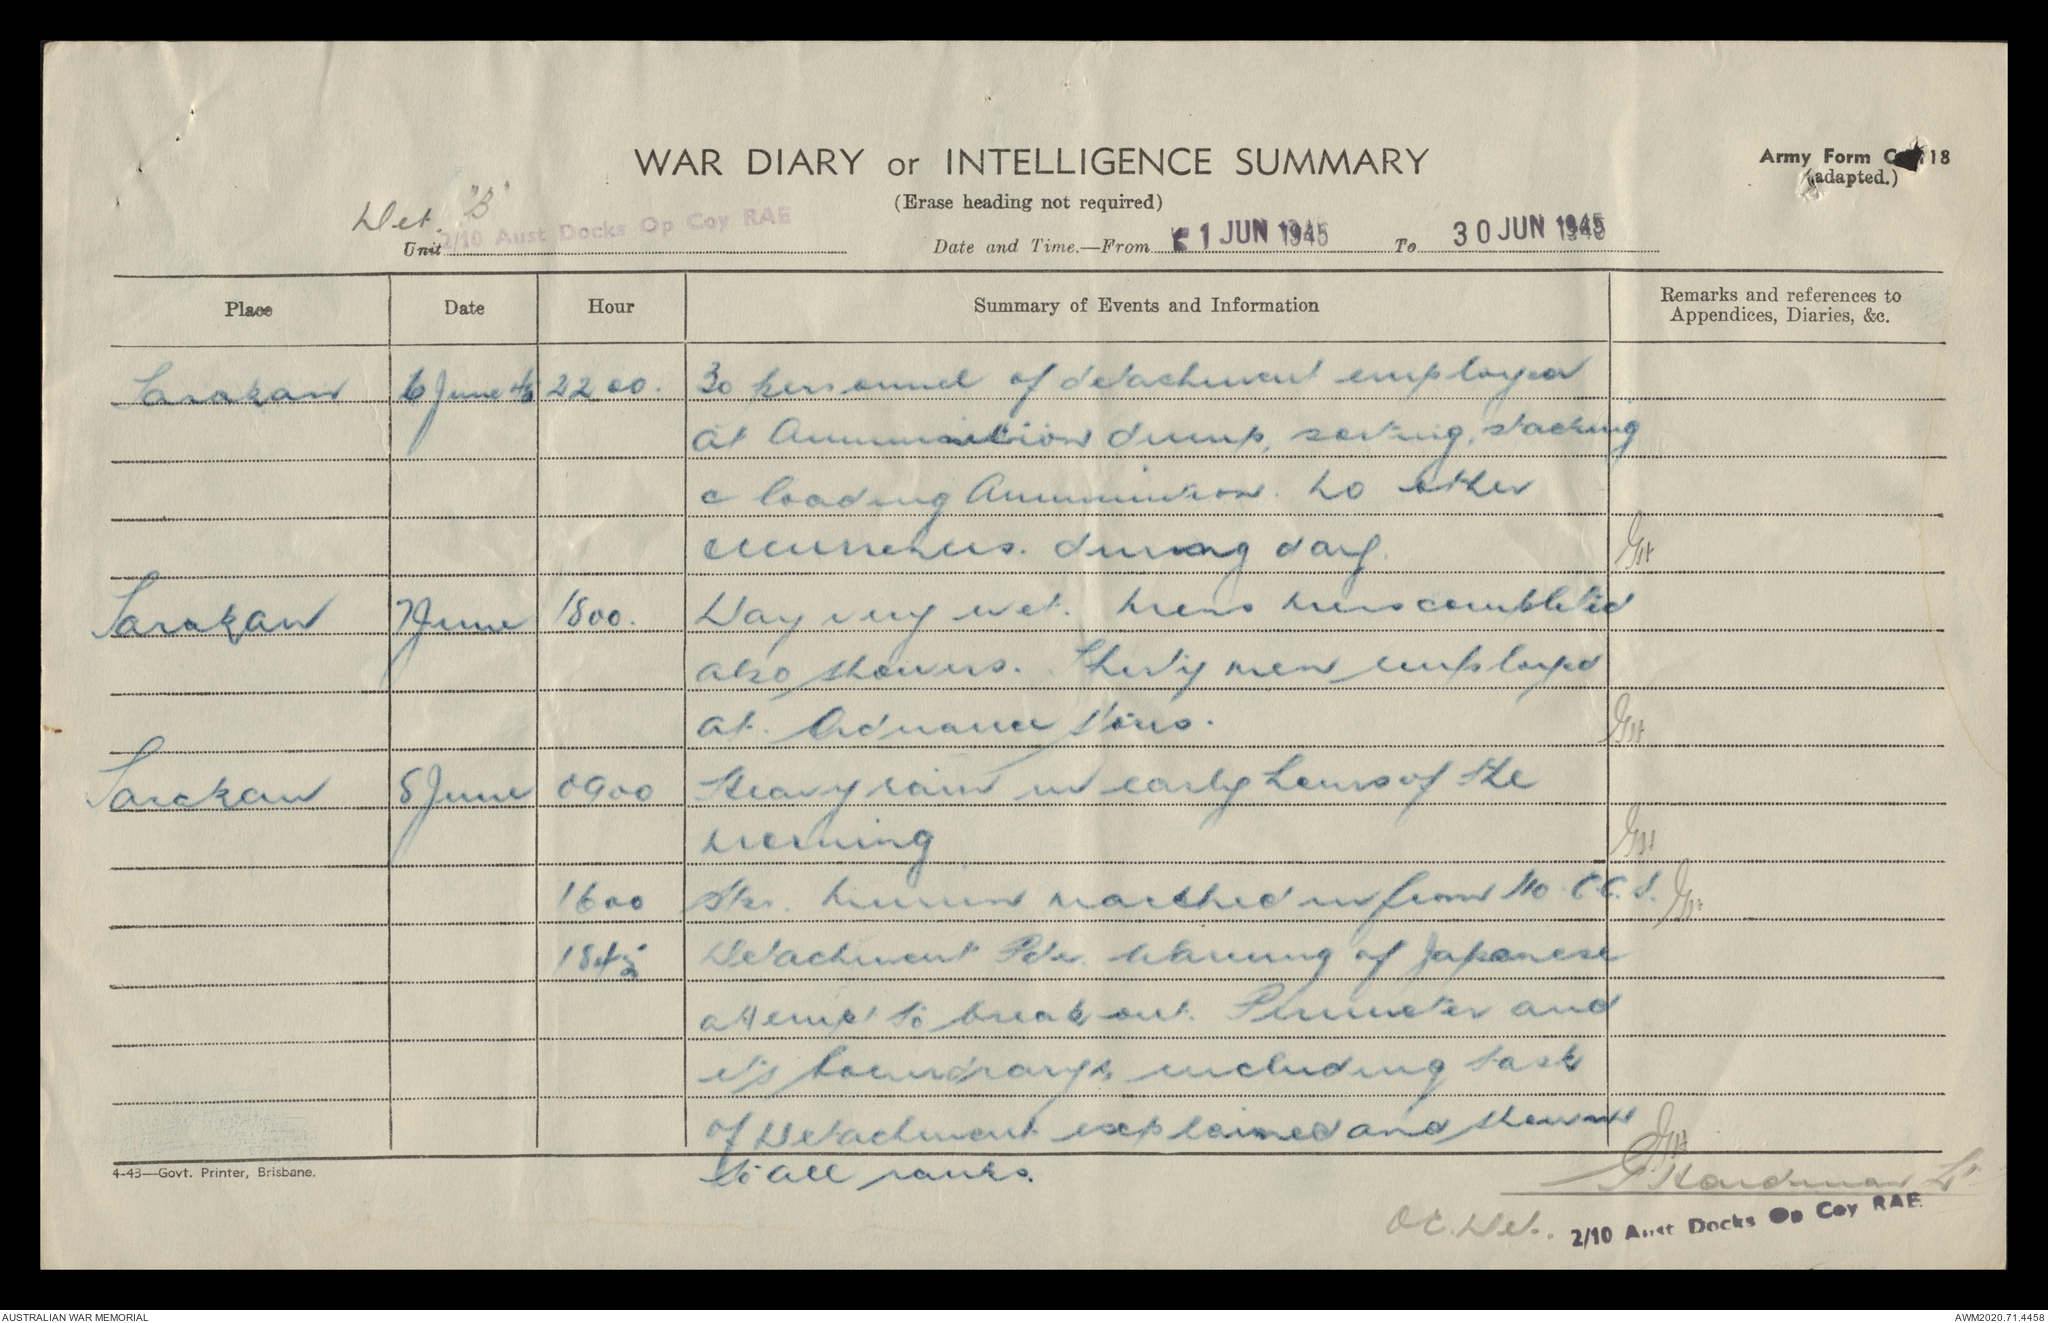 WAR DIARY or INTELLIGENCE SUMMARY
(Erase heading not required)
Army Form C 118
(adapted.)
Det. "B"
Unit 2/10 Aust Docks Op Coy RAE
Date and Time.—From 1 JUN 1945 To 30 JUN 1945
Place Date Hour Summary of Events and Information Remarks and references to
Appendices, Diaries, &c.
Tarakan 6 June 45 2200. 30 personnel of detachment employed
at Ammunition dump, sorting, stacking
& loading Ammunition. No other
occurrences. during day.
Tarakan 7 June 1800. Day very wet. mens completed
also showers. Thirty men employed
at Ordnance Stores.
Tarakan 8 June 0900 Heavy rain in early hours of the
morning
1600 Spr. marched in from 110 C.C.S.
1845 Detachment Pde. Warning of Japanese
attempt to break out. Perimeter and
it's boundarys, including task
of Detachment explained and shewn
to all ranks.
4-43—Govt. Printer, Brisbane.
G Hardman Lt
OC. Det. 2/10 Aust Docks Op Coy RAE
AUSTRALIAN WAR MEMORIAL
AWM2020.71.4458